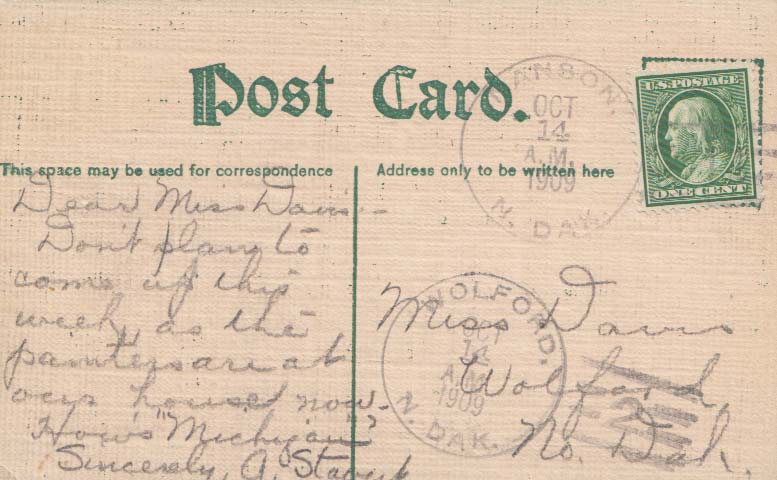 Post Card.
ANSON.
OCT
14
A.M.
1909
N. DAK.
U.S. POSTAGE
ONE CENT
This space may be used for correspondence
Address only to be written here
Dear Miss Davis:-
Don't plan to
come up this
week, as the
painters are at
our house now.
How's "Michigan"
Sincerely, A.
WOLFORD.
OCT
14
A.M.
1909
N. DAK.
Miss Davis
Wolford,
No. Dak.
2